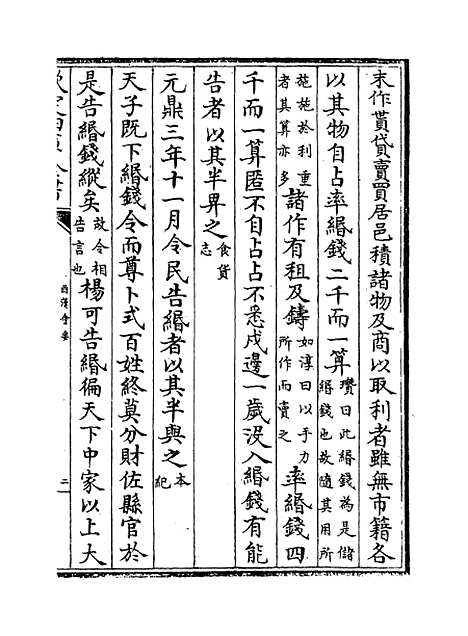 末作貰貸賣買居邑積諸物及商以取利者雖無市籍各
以其物自占率緡錢二千而一算瓚曰此緡錢為是儲
緡錢也故隨其用所
施施於利重
者其算亦多諸作有租及鑄如淳曰以手力
所作而賣之率緡錢四
千而一算匿不自占占不悉戍邊一歲沒入緡錢有能
告者以其半畀之食貨
志
元鼎三年十一月令民告緡者以其半與之本
紀
天子既下緡錢令而尊卜式百姓終莫分財佐縣官於
是告緡錢縱矣故令相
告言也楊可告緡徧天下中家以上大
欽定四庫全書
西漢會要